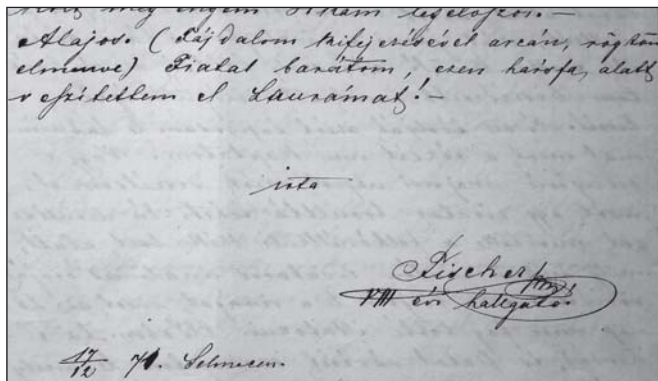 meg engem
Alajos. (Fájdalom kifejezésével arcán, rögtön
elmenve) Fiatal barátom, ezen hársfa alatt
veszitettem el Laurámat! —
irta
Fischer
VIII évi hallgató
17/12 71. Selmecen.